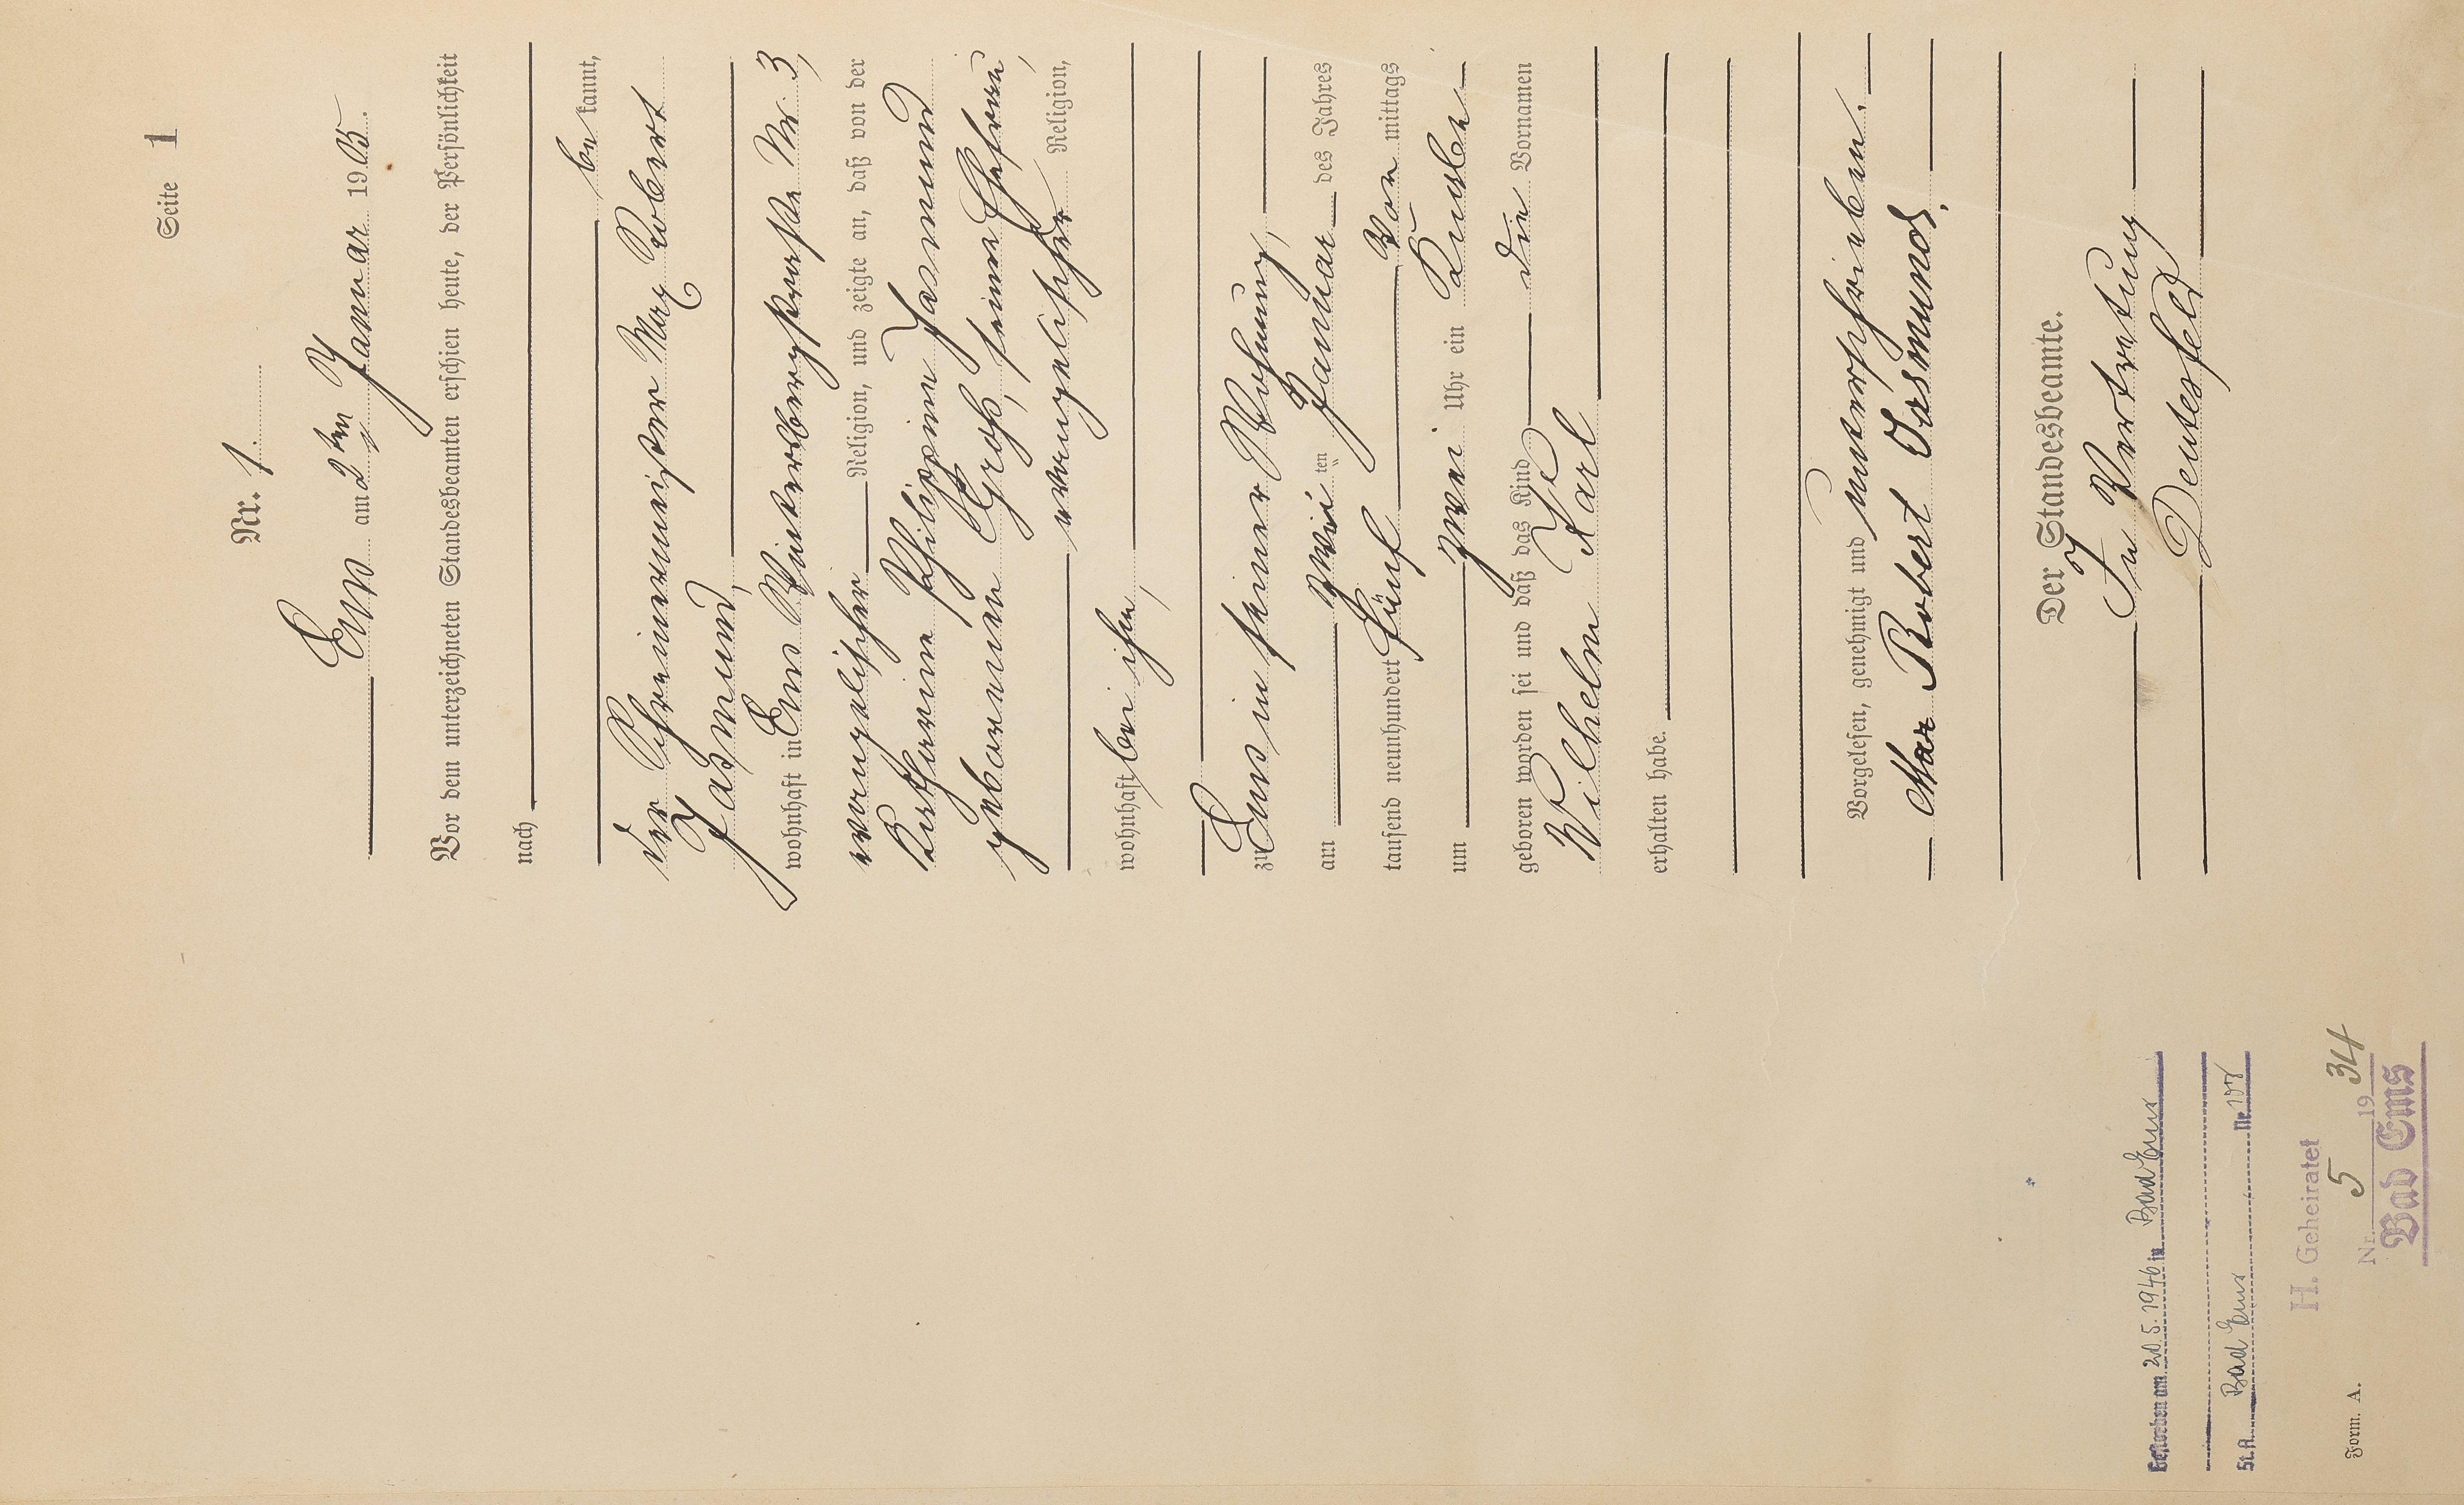 Seite 1
Nr. 1.
Ems am 2ten Januar 1905.
Vor dem unterzeichneten Standesbeamten erschien heute, der Persönlichkeit
nach
bekannt,
der Schreinermeister Max Robert
Jasmund,
wohnhaft in Ems Winterbergstraße Nr. 3,
evangelischer Religion, und zeigte an, daß von der
Katharine Philippine Jasmund
geborenen Groß, seiner Ehefrau,
evangelischer Religion,
wohnhaft bei ihm,
zu Ems in seiner Wohnung,
am zweiten Januar des Jahres
tausend neunhundert fünf Vormittags
um zwei Uhr ein Knabe
geboren worden sei und daß das Kind die Vornamen
Wilhelm Karl
erhalten habe.
Vorgelesen, genehmigt und unterschrieben.
Max Robert Jasmund.
Der Standesbeamte.
In Vertretung
Deutesfeld
Gestorben am 20.5.1946 in Bad Ems
St.A. Bad Ems Nr.
H. Geheiratet
Nr. 5 1934
Bad Ems
Form. A.